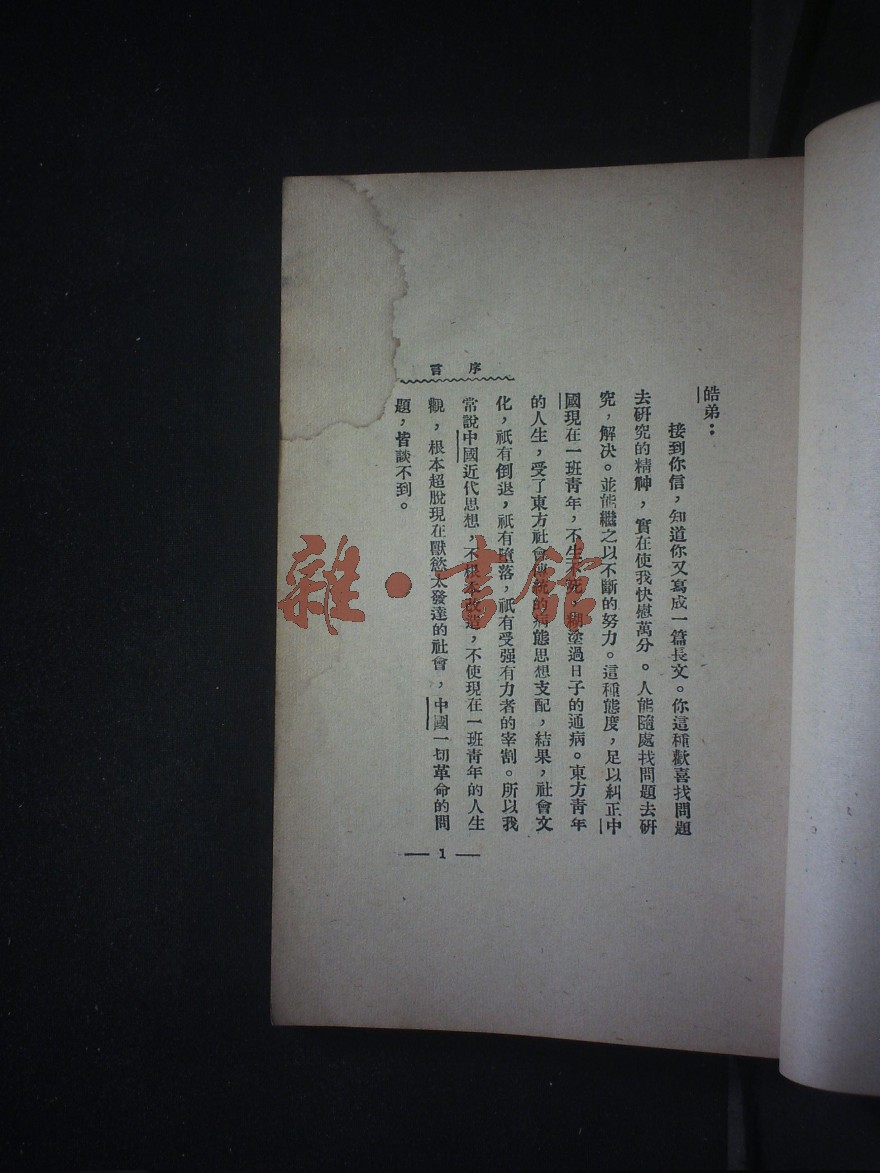 序言
皓弟：
接到你信，知道你又寫成一篇長文。你這種歡喜找問題
去研究的精神，實在使我快慰萬分。人能隨處找問題去研
究，解決。並能繼之以不斷的努力。這種態度，足以糾正中
國現在一班靑年，不生不死，糊塗過日子的通病。東方靑年
的人生，受了東方社會傳統的病態思想支配，結果，社會文
化，祇有倒退，祇有墮落，祇有受强有力者的宰割。所以我
常說中國近代思想，不根本改造，不使現在一班靑年的人生
觀，根本超脫現在獸慾太發達的社會，中國一切革命的問
題，皆談不到。
— 1 —
雜·書館